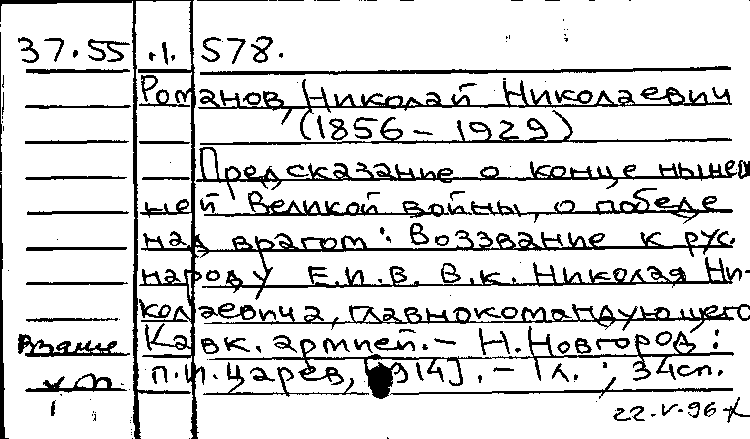 37.55 .1. 578.
Романов, Николай Николаевич
(1856 – 1929)
Предсказание о конце нынеш
ней Великой войны, о победе
над врагом: Воззвание к рус.
народу Е.И.В. В.к. Николая Ни-
колаевича, главнокомандующего
Кавк. армией. – Н.Новгород:
П.И.Царев, [1914]. – 1 л.; 34 см.
22.V.96